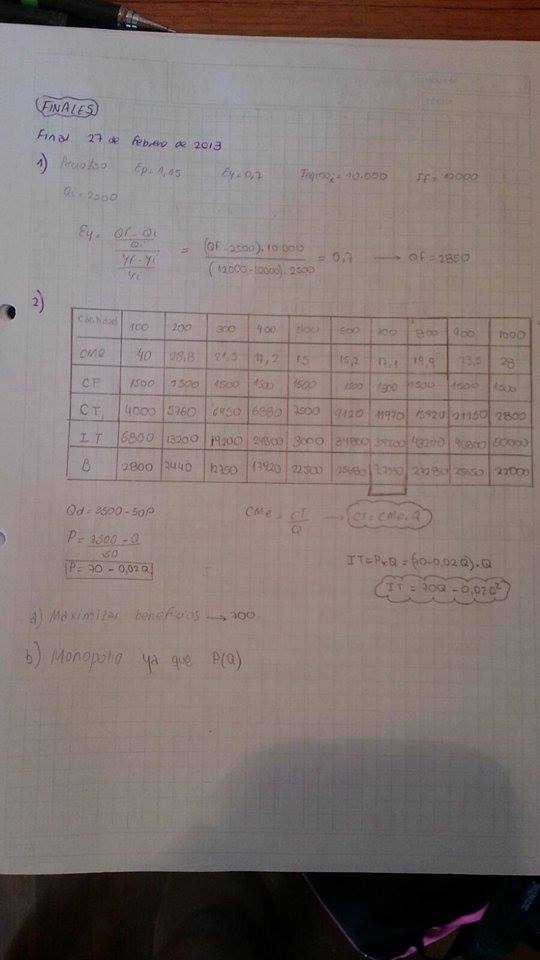 FINALES
Final 27 de Febrero de 2013
1) Ep= 1,15 Ey= 0,7 = 10.000 If = 12000
Qi = 2500
Ey = Qf - Qi / Qi / Yf - Yi / Yi = (Qf - 2500).10.000 / (12000 - 10000).2500 = 0,7 → Qf = 2850
2)
Cantidad 100 200 300 400 500 600 700 800 900 1000
CMe 40 28,8 21,5 17,2 15 15,2 17,1 19,9 23,5 28
CF 1500 1500 1500 1500 1500 1500 1500 1500 1500 1500
CT 4000 5760 6450 6880 7500 9120 11970 15920 21150 2800
IT 6800 13200 19200 24800 3000 34800 39200 43200 46800 50000
B 2800 7440 12750 17920 22500 25680 27230 27280 25650 22000
Qd = 3500 - 50P
CMe = CT / Q → CT = CMe . Q
P = 3500 - Q / 50
P = 70 - 0,02Q
IT = P x Q = (70 - 0,02Q) . Q
IT = 70Q - 0,02Q²
a) Maximizar beneficios → 700
b) Monopolio ya que P(Q)